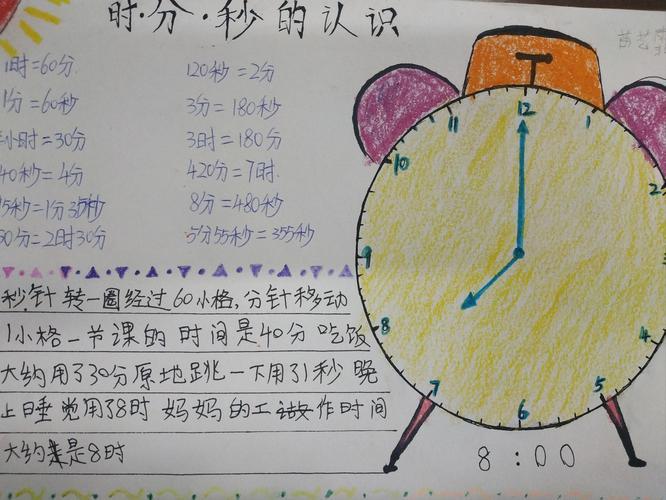 时·分·秒的认识
1时=60分 120秒=2分
1分=60秒 3分=180秒
半小时=30分 3时=180分
40秒=4分 420分=7时
5秒=1分35秒 8分=480秒
50分=2时30分 5分55秒=355秒
秒针转一圈经过60小格,分针移动
1小格一节课的时间是40分吃饭
大约用了30分原地跳一下用了1秒晚
上睡觉用了8时妈妈的工作时间
大约是8时
12
11 1
10 2
9 3
8 4
7 5
6
8:00